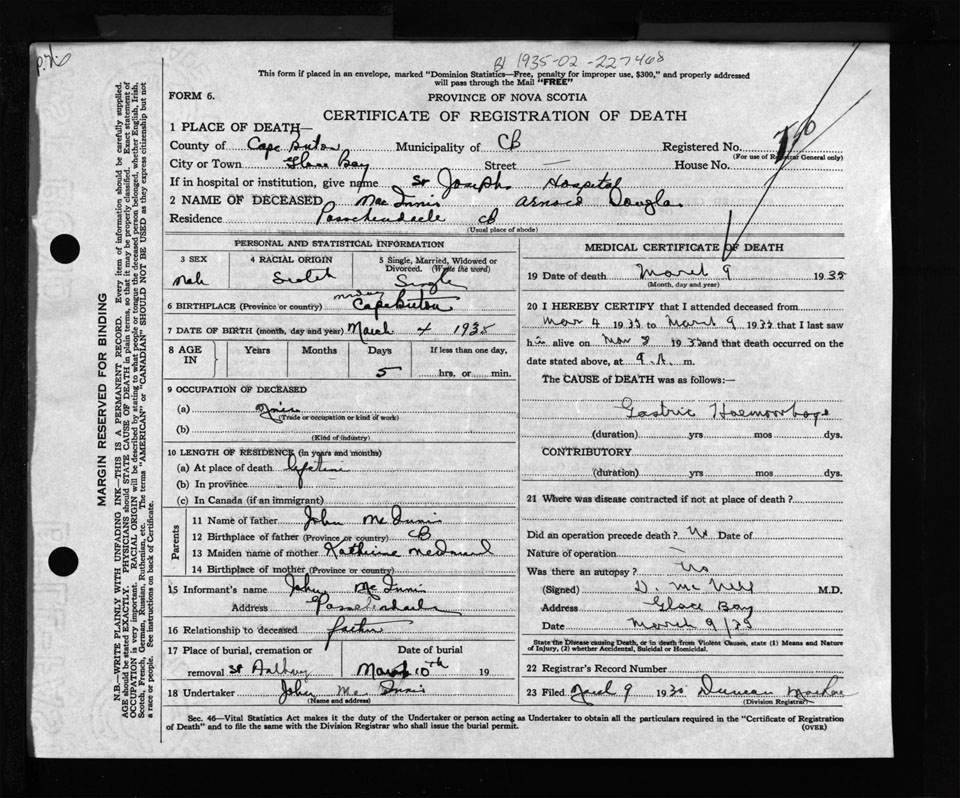 B1 1935-02-227468
This form if placed in an envelope, marked "Dominion Statistics—Free, penalty for improper use, $300," and properly addressed
will pass through the Mail "FREE"
FORM 6.
PROVINCE OF NOVA SCOTIA
CERTIFICATE OF REGISTRATION OF DEATH
1 PLACE OF DEATH—
County of Cape Breton Municipality of CB Registered No.
(For use of Registrar General only)
City or Town Glace Bay Street — House No.
If in hospital or institution, give name St Josephs Hospital
2 NAME OF DECEASED Mac Innis Arnold Douglas
Residence Passchendaele CB
(Usual place of abode)
PERSONAL AND STATISTICAL INFORMATION
3 SEX Male
4 RACIAL ORIGIN Scotch
5 Single, Married, Widowed or
Divorced. (Write the word)
Single
6 BIRTHPLACE (Province or country) Cape Breton
7 DATE OF BIRTH (month, day and year) March 4 1935
8 AGE IN Years Months Days If less than one day,
5 hrs. or min.
9 OCCUPATION OF DECEASED
(a)
(Trade or occupation or kind of work)
(b)
(Kind of industry)
10 LENGTH OF RESIDENCE (in years and months)
(a) At place of death lifetime
(b) In province
(c) In Canada (if an immigrant)
Parents
11 Name of father John McInnis
12 Birthplace of father (Province or country) CB
13 Maiden name of mother Katherine
14 Birthplace of mother (Province or country)
15 Informant's name John McInnis
Address Passchendaele
16 Relationship to deceased father
17 Place of burial, cremation or
removal St Anthony
Date of burial
March 10th 19
18 Undertaker John McInnis
(Name and address)
MEDICAL CERTIFICATE OF DEATH
19 Date of death March 9 1935
(Month, day and year)
20 I HEREBY CERTIFY that I attended deceased from
Mar 4 1935 to March 9 1935 that I last saw
him alive on Mar 8 1935 and that death occurred on the
date stated above, at 9 A. m.
The CAUSE of DEATH was as follows:—
Gastric Haemorrhage
(duration) yrs mos dys.
CONTRIBUTORY
(duration) yrs mos dys.
21 Where was disease contracted if not at place of death?
Did an operation precede death? No Date of
Nature of operation —
Was there an autopsy? No
(Signed) D. McNeil M.D.
Address Glace Bay
Date March 9/35
State the Disease causing Death, or in death from Violent Causes, state (1) Means and Nature
of Injury, (2) whether Accidental, Suicidal or Homicidal.
22 Registrar's Record Number
23 Filed March 9 1935 Duncan
(Division Registrar)
Sec. 46—Vital Statistics Act makes it the duty of the Undertaker or person acting as Undertaker to obtain all the particulars required in the "Certificate of Registration
of Death" and to file the same with the Division Registrar who shall issue the burial permit.
(OVER)
MARGIN RESERVED FOR BINDING
N.B.—WRITE PLAINLY WITH UNFADING INK—THIS IS A PERMANENT RECORD. Every item of information should be carefully supplied.
AGE should be stated EXACTLY. PHYSICIANS should STATE CAUSE OF DEATH in plain terms, so that it may be properly classified. Exact statement of
OCCUPATION is very important. RACIAL ORIGIN will be described by stating to what people or tongue the deceased person belonged, whether English, Irish,
Scotch, French, German, Russian, Ruthenian, etc. The terms "AMERICAN" or "CANADIAN" SHOULD NOT BE USED as they express citizenship but not
a race or people. See instructions on back of Certificate.